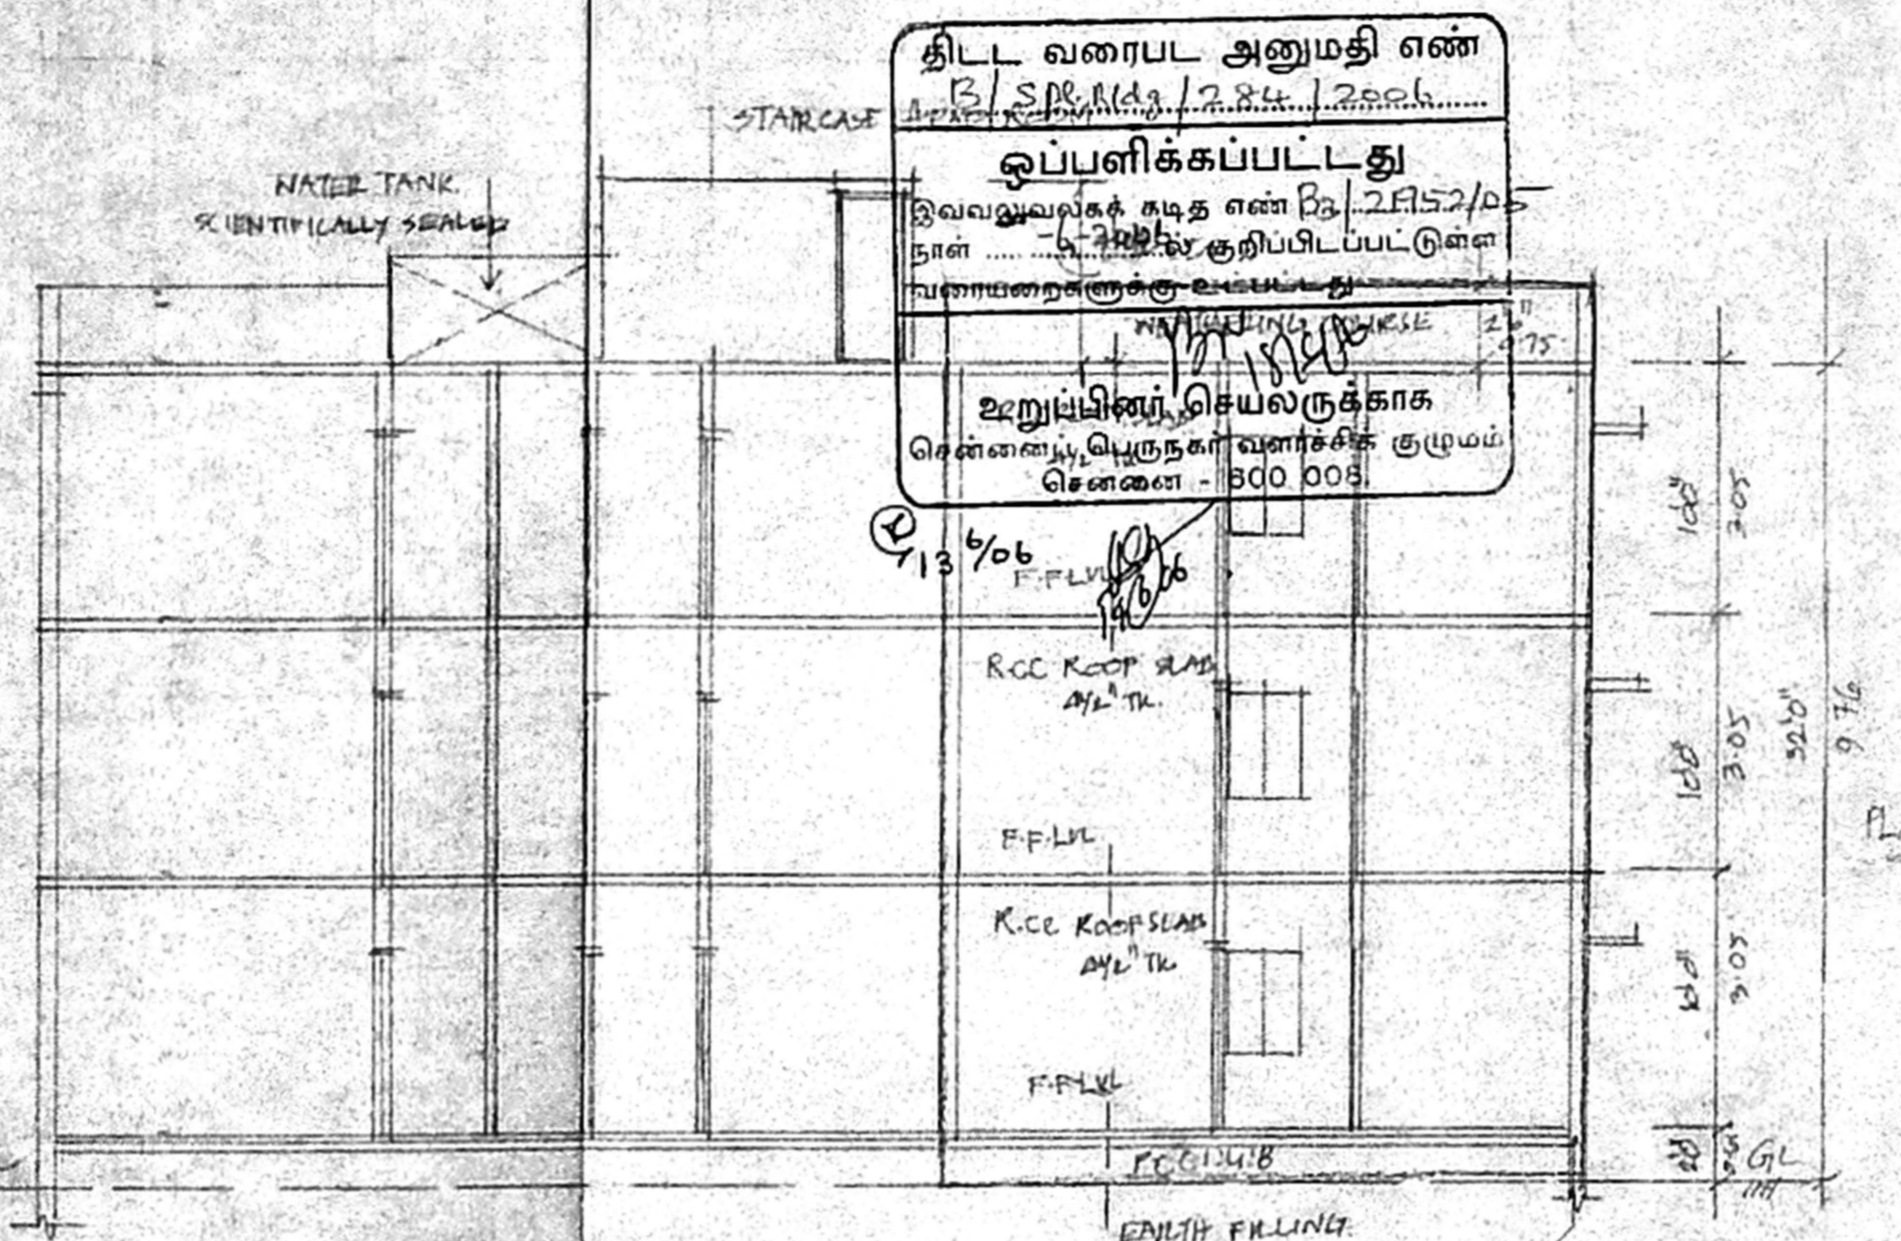 திட்ட வரைபட அனுமதி எண்
B / Spl. Bldg / 284 / 2006
ஒப்பளிக்கப்பட்டது
இவ்வலுவலகக் கடித எண் B3/21952/05
நாள் -6-2006 ல் குறிப்பிடப்பட்டுள்ள
வரையறைகளுக்கு உட்பட்டது
உறுப்பினர் செயலருக்காக
சென்னைப் பெருநகர் வளர்ச்சிக் குழுமம்
சென்னை - 600 008.
STAIRCASE
WATER TANK
SCIENTIFICALLY SEALED
COURSE
13 6/06
F.F.LVL
R.C.C ROOF SLAB
4½" TK.
F.F.LVL
R.CC ROOF SLAB
4½" TK
F.F.LVL
PCC 1:4:8
EARTH FILLING
10'0"
3.05
10'0"
3.05
32'0"
9.76
10'0"
3.05
2'0"
GL